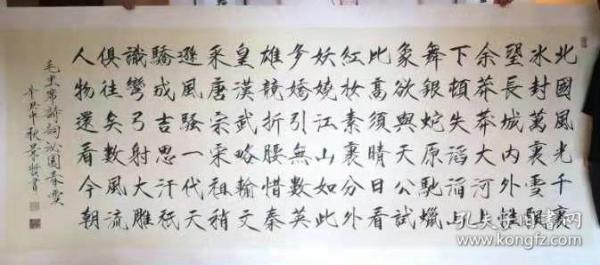 北國風光千裏
冰封萬裏雪飄
望長城內外惟
余莽莽大河上
下頓失滔滔山
舞銀蛇原馳蠟
象欲與天公試
比高須晴日看
紅妝素裹分外
妖嬈江山如此
多嬌引無數英
雄競折腰惜秦
皇漢武略輸文
采唐宗宋祖稍
遜風騷一代天
驕成吉思汗祇
識彎弓射大雕
俱往矣數風流
人物還看今朝
毛主席詩詞沁園春雪
秋
書
孔夫子旧书网
www.kongfz.com